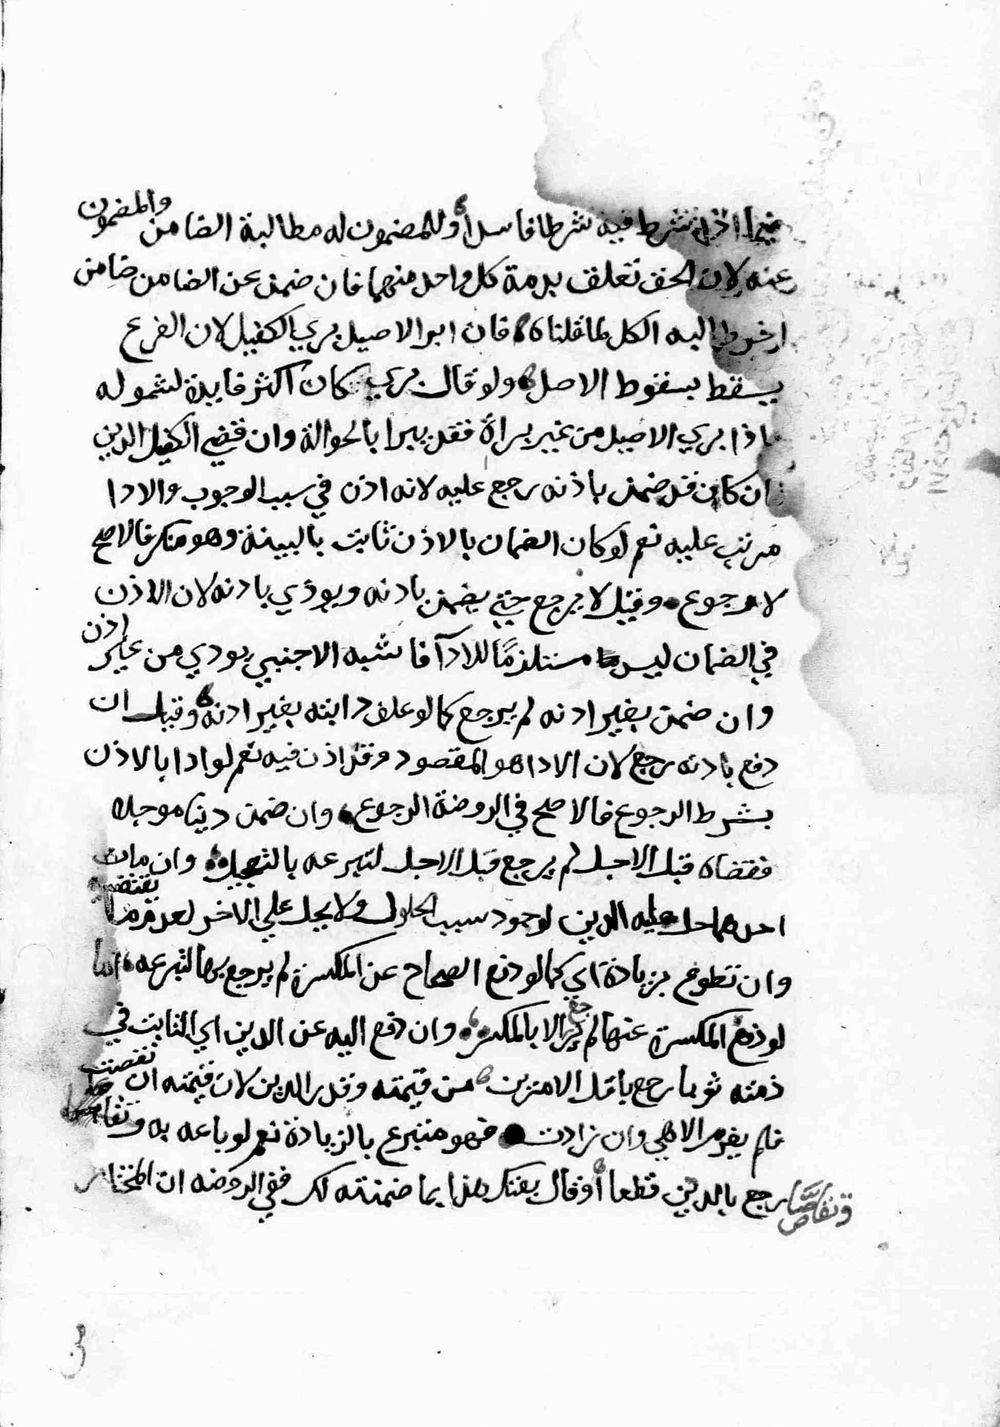 فيما اذا شرط فيه شرطا فاسدا وللمضمون له مطالبة الضامن والمضمون
عنه لان الحق تعلق بذمة كل واحد منهما فان ضمن عن الضامن ضامن
اخر طالبه الكل لما قلناه فان ابرا الاصيل بري الكفيل لان الفرع
يسقط بسقوط الاصل ولو قال بري كان اكثر فايدة لشموله
ما اذا بري الاصيل من غير براة فقد يبرا بالحوالة وان قضي الكفيل الدين
فان كان قد ضمن باذنه رجع عليه لانه اذن في سبب الوجوب والادا
مرتب عليه نعم لو كان الضمان بالاذن ثابت بالبينة وهو منكر فالاصح
لا رجوع وقيل لا يرجع حتي يضمن باذنه ويودي باذنه لان الاذن
في الضمان ليس مستلزمًا للادآ فاشبه الاجنبي يودي من غير اذن
وان ضمن بغير اذنه لم يرجع كما لو علف دابته بغير اذنه وقيل ان
دفع باذنه رجع لان الادا هو المقصود وقد اذن فيه نعم لو ادا بالاذن
بشرط الرجوع فالاصح في الروضة الرجوع وان ضمن دينا موجلا
فقضاه قبل الاجل لم يرجع قبل الاجل لتبرعه بالتعجيل وان مات
احدهما حل عليه الدين لوجود سبب الحلول ولا يحل علي الاخر لعدم ما يقتضيه
وان تطوع بزيادة اي كما لو دفع الصحاح عن المكسرة لم يرجع بها لتبرعه اما
لو دفع المكسرة عنها لم يرجع الا بالمكسرة وان دفع اليه عن الدين اي الثابت في
ذمته ثوبا رجع باقل الامرين من قيمته وقدر الدين لان قيمته ان نقصت
فلم يغرم الا هي وان زادت فهو متبرع بالزيادة نعم لو باعه به وتقاصا
رجع بالدين قطعا او قال بعتك هذا بما ضمنته لك ففي الروضه ان المختار
وتقاصّا
من